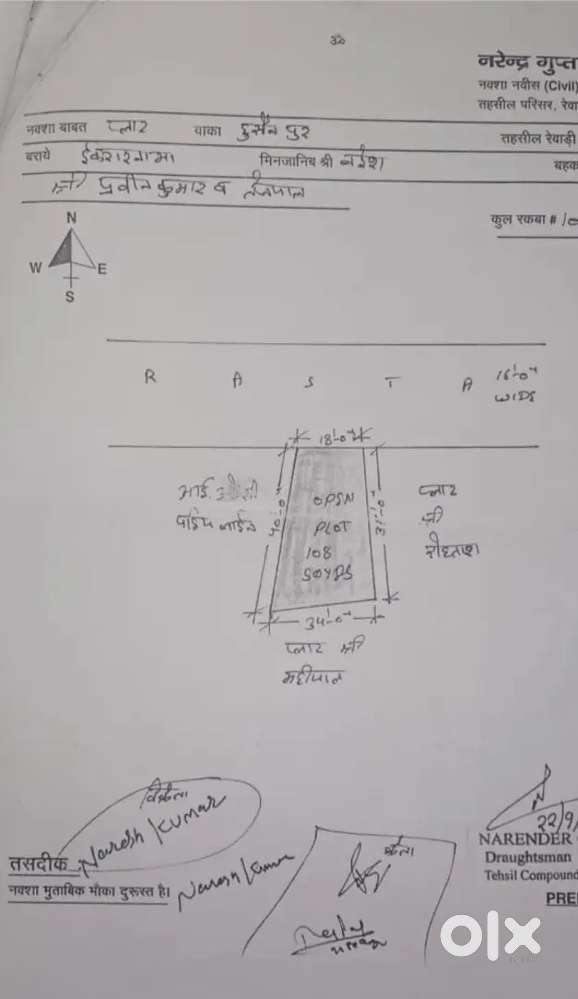 ॐ
नरेन्द्र गुप्त
नक्शा नवीस (Civil)
तहसील परिसर, रेवा
नक्शा बाबत प्लाट वाका हुसैनपुर तहसील रेवाड़ी
बराये ईकरारनामा मिनजानिब श्री नरेश बहक
श्री प्रवीन कुमार व तेजपाल
कुल रकबा #
N
W E
S
R A S T A 16'-0" WIDE
18'-0"
आई. ओ. सी
पाईप लाईन
OPEN
PLOT
108
SQYDS
प्लाट
श्री
रोहताश
34'-0"
प्लाट श्री
महीपाल
विक्रेता
Naresh Kumar
तसदीक
नक्शा मुताबिक मौका दुरूस्त है।
Naresh Kumar
क्रेता
22/9/
NARENDER
Draughtsman
Tehsil Compound
PRE
olx